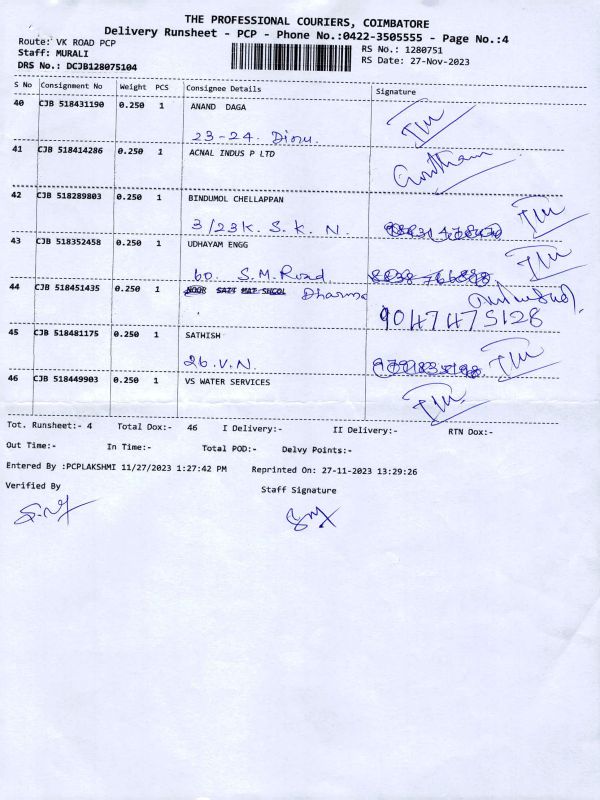 THE PROFESSIONAL COURIERS, COIMBATORE
Delivery Runsheet - PCP - Phone No.:0422-3505555 - Page No.:4
Route: VK ROAD PCP
RS No.: 1280751
Staff: MURALI
RS Date: 27-Nov-2023
DRS No.: DCJB128075104
S No Consignment No Weight PCS Consignee Details Signature
40 CJB 518431190 0.250 1 ANAND DAGA
23-24. Dionu.
41 CJB 518414286 0.250 1 ACNAL INDUS P LTD
Gowtham
42 CJB 518289803 0.250 1 BINDUMOL CHELLAPPAN
3/23K. S. K. N.
43 CJB 518352458 0.250 1 UDHAYAM ENGG
60. S.M. Road
44 CJB 518451435 0.250 1 Dharma
9047475128
45 CJB 518481175 0.250 1 SATHISH
26.V.N.
46 CJB 518449903 0.250 1 VS WATER SERVICES
Tot. Runsheet:- 4 Total Dox:- 46 I Delivery:- II Delivery:- RTN Dox:-
Out Time:- In Time:- Total POD:- Delvy Points:-
Entered By :PCPLAKSHMI 11/27/2023 1:27:42 PM Reprinted On: 27-11-2023 13:29:26
Verified By Staff Signature